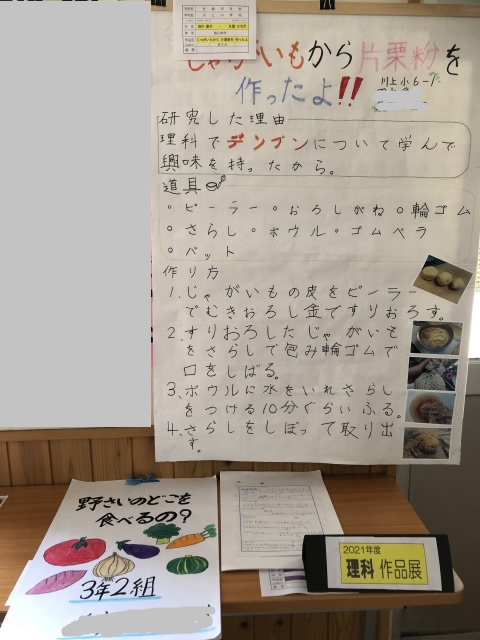 じゃがいもから片栗粉を
作ったよ!!
川上小6-1
研究した理由
理科でデンプンについて学んで
興味を持ったから。
道具
・ピーラー・おろしがね・輪ゴム
・さらし・ボウル・ゴムベラ
・バット
作り方
1.じゃがいもの皮をピーラー
でむきおろし金ですりおろす。
2.すりおろしたじゃがいも
をさらしで包み輪ゴムで
口をしばる。
3.ボウルに水をいれさらし
をつける10分ぐらいふる。
4.さらしをしぼって取り出
す。
野さいのどこを
食べるの?
3年2組
2021年度
理科 作品展